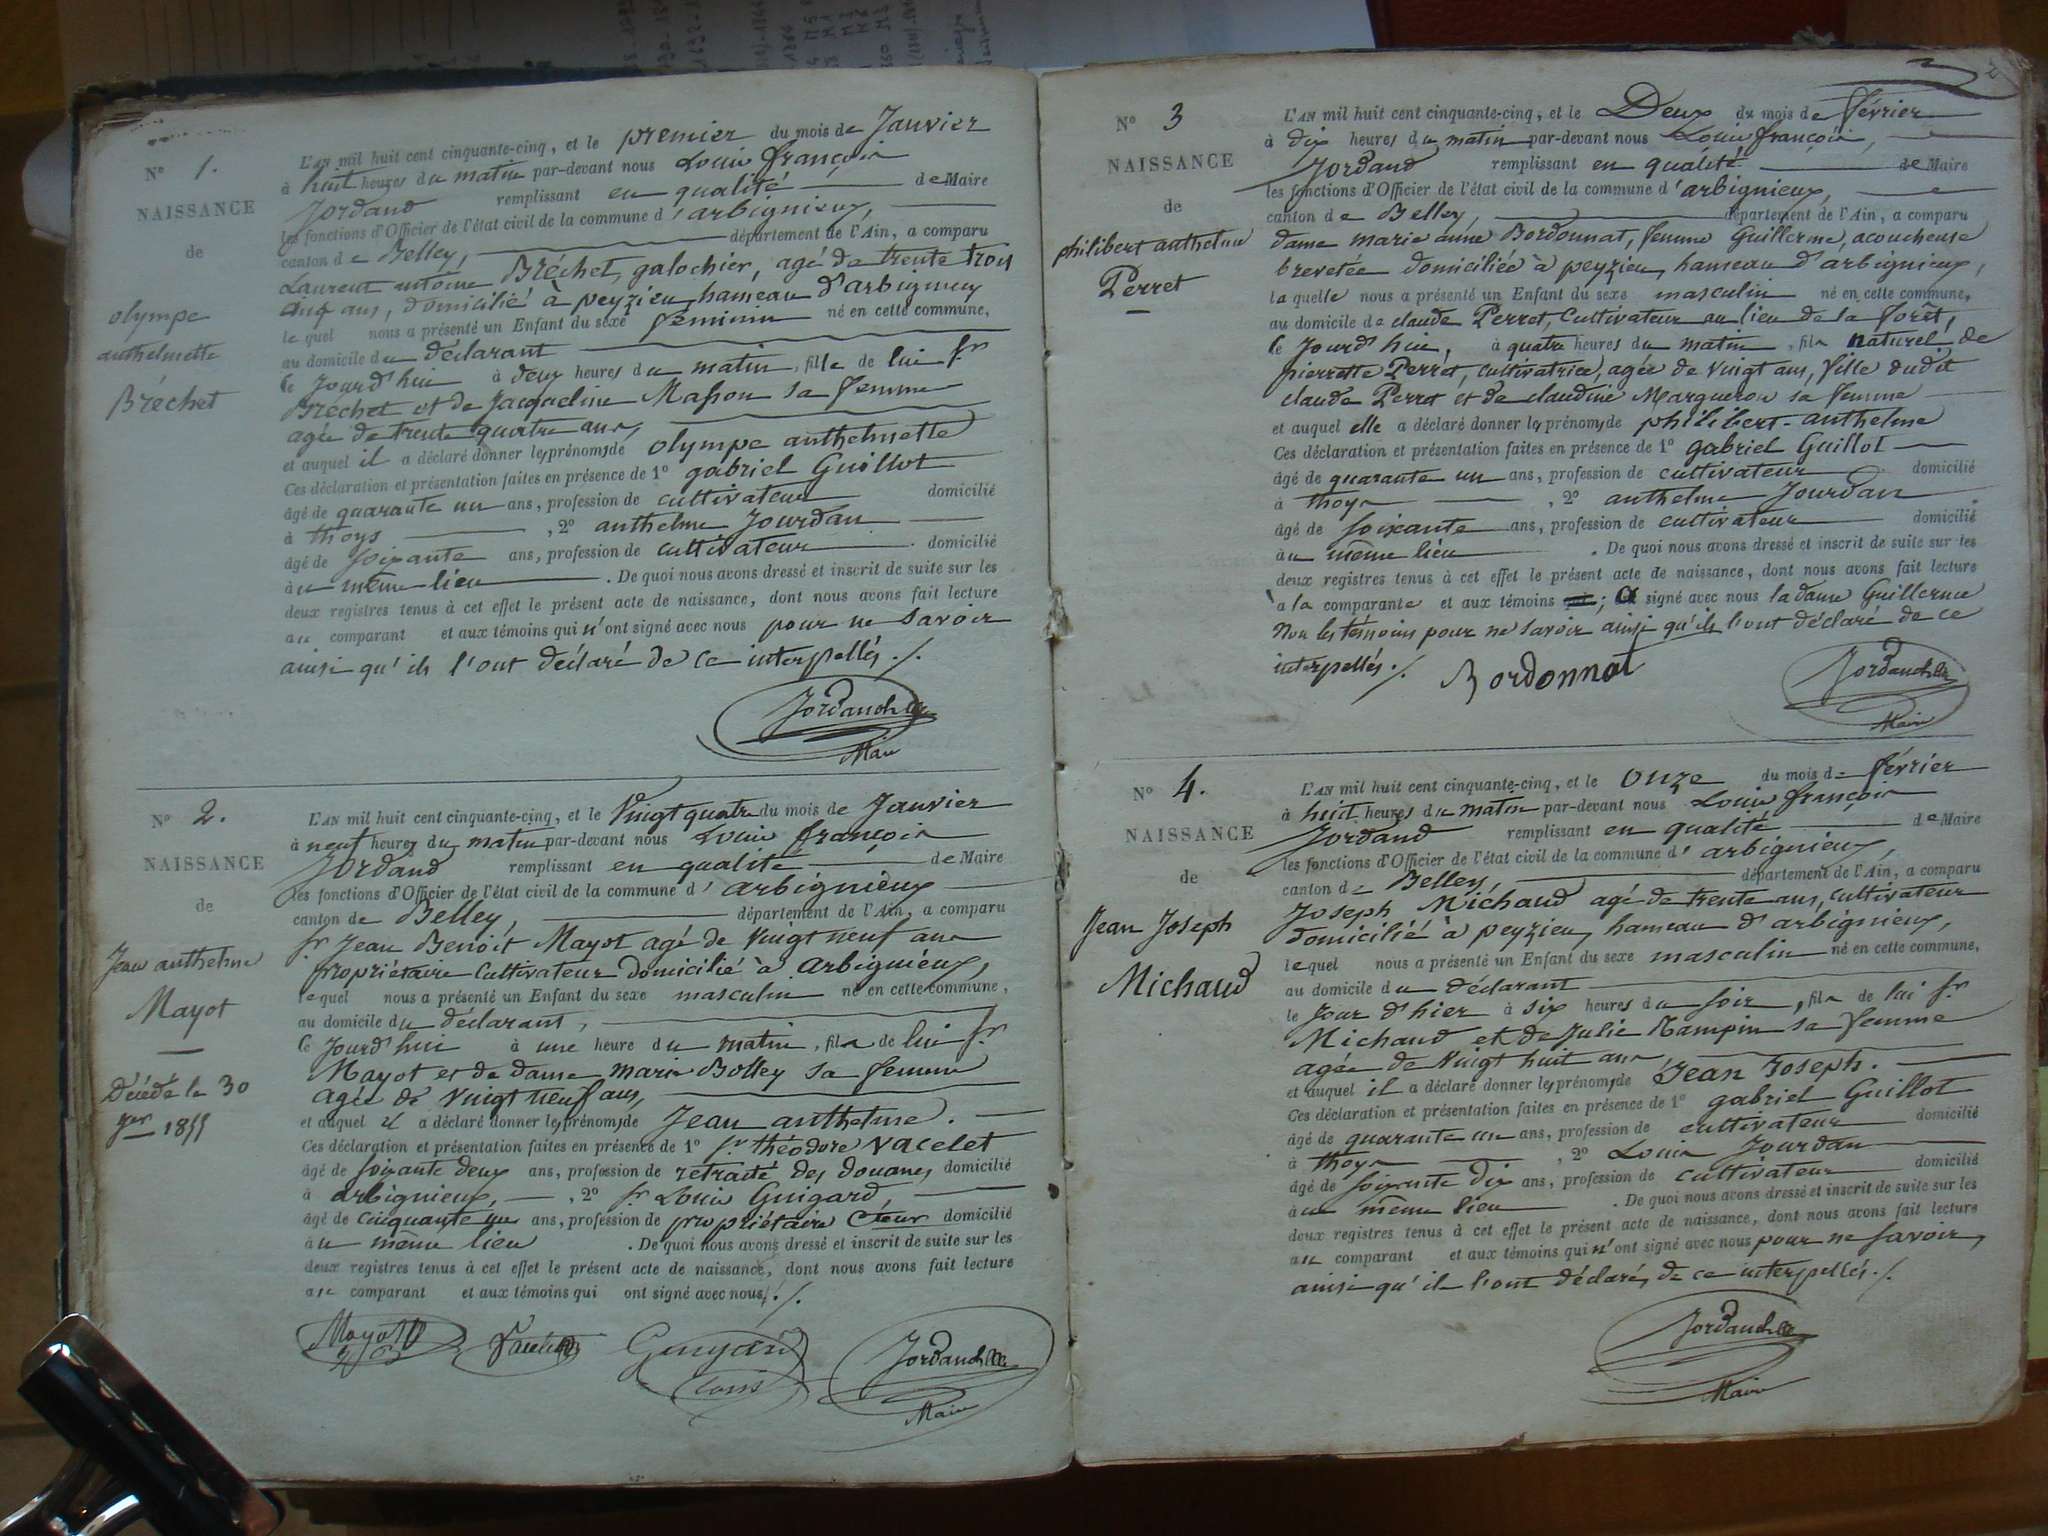 N° 1.
NAISSANCE
de
olympe
anthelmette
Bréchet
L'AN mil huit cent cinquante-cinq, et le premier du mois de Janvier
à huit heures du matin par-devant nous Louis françois
Jordand remplissant en qualité de Maire
les fonctions d'Officier de l'état civil de la commune d'arbignieux,
canton de Belley, département de l'Ain, a comparu
Laurent antoine Bréchet, galochier, agé de trente trois
cinq ans, domicilié à peyzieu, hameau d'arbignieux
le quel nous a présenté un Enfant du sexe féminin né en cette commune,
au domicile du déclarant
ce Jourd'hui à deux heures du matin, fille de lui Sr
Bréchet et de Jacqueline Masson sa femme
agée de trente quatre ans,
et auquel il a déclaré donner les prénoms de olympe anthelmette
Ces déclaration et présentation faites en présence de 1° gabriel Guillot
âgé de quarante un ans, profession de cultivateur domicilié
à thoys, 2° anthelme Jourdan
âgé de soixante ans, profession de cultivateur domicilié
au même lieu. De quoi nous avons dressé et inscrit de suite sur les
deux registres tenus à cet effet le présent acte de naissance, dont nous avons fait lecture
au comparant et aux témoins qui n'ont signé avec nous pour ne savoir
ainsi qu'ils l'ont déclaré de ce interpellés ./.
Jordand
Maire
N° 2.
NAISSANCE
de
Jean anthelme
Mayot
Décédé le 30
1855
L'AN mil huit cent cinquante-cinq, et le Vingt quatre du mois de Janvier
à neuf heures du matin par-devant nous Louis françois
Jordand remplissant en qualité de Maire
les fonctions d'Officier de l'état civil de la commune d'arbignieux
canton de Belley, département de l'Ain, a comparu
Sr Jean Benoît Mayot agé de vingt neuf ans
propriétaire cultivateur domicilié à arbignieux,
le quel nous a présenté un Enfant du sexe masculin né en cette commune,
au domicile du déclarant,
ce Jourd'hui à une heure du matin, fils de lui Sr
Mayot et de dame marie Bolley sa femme
agée de vingt neuf ans,
et auquel il a déclaré donner les prénoms de Jean anthelme.
Ces déclaration et présentation faites en présence de 1° Sr théodore vacelet
âgé de soixante deux ans, profession de retraité des douanes domicilié
à arbignieux, 2° Sr Louis Guigard,
âgé de cinquante un ans, profession de propriétaire cteur domicilié
au même lieu. De quoi nous avons dressé et inscrit de suite sur les
deux registres tenus à cet effet le présent acte de naissance, dont nous avons fait lecture
au comparant et aux témoins qui ont signé avec nous, ./.
Mayot Guigard Jordand
Maire
N° 3
NAISSANCE
de
philibert anthelme
Perret
L'AN mil huit cent cinquante-cinq, et le Deux du mois de février
à dix heures du matin par-devant nous Louis françois,
Jordand remplissant en qualité de Maire
les fonctions d'Officier de l'état civil de la commune d'arbignieux,
canton de Belley, département de l'Ain, a comparu
dame marie anne Bordonnat, femme Guillerme, acoucheuse
brevetée domiciliée à peyzieu, hameau d'arbignieux,
la quelle nous a présenté un Enfant du sexe masculin né en cette commune,
au domicile de claude Perret, cultivateur au lieu de la forêt,
ce Jourd'hui, à quatre heures du matin, fils naturel de
pierrette Perret, cultivatrice, agée de vingt ans, fille dudit
claude Perret et de claudine Margueron sa femme
et auquel elle a déclaré donner les prénoms de philibert-anthelme
Ces déclaration et présentation faites en présence de 1° gabriel Guillot
âgé de quarante un ans, profession de cultivateur domicilié
à thoys, 2° anthelme Jourdan
âgé de soixante ans, profession de cultivateur domicilié
au même lieu. De quoi nous avons dressé et inscrit de suite sur les
deux registres tenus à cet effet le présent acte de naissance, dont nous avons fait lecture
à la comparante et aux témoins; a signé avec nous la dame Guillerme
non les témoins pour ne savoir ainsi qu'ils l'ont déclaré de ce
interpellés ./. Bordonnat Jordand
Maire
N° 4.
NAISSANCE
de
Jean Joseph
Michaud
L'AN mil huit cent cinquante-cinq, et le onze du mois de février
à huit heures du matin par-devant nous Louis françois
Jordand remplissant en qualité de Maire
les fonctions d'Officier de l'état civil de la commune d'arbignieux,
canton de Belley département de l'Ain, a comparu
Joseph Michaud agé de trente ans, cultivateur
domicilié à peyzieu, hameau d'arbignieux,
le quel nous a présenté un Enfant du sexe masculin né en cette commune,
au domicile du déclarant
le Jour d'hier à six heures du soir, fils de lui Sr
Michaud et de Julie Rampin sa femme
agée de vingt huit ans
et auquel il a déclaré donner les prénoms de Jean Joseph.
Ces déclaration et présentation faites en présence de 1° gabriel Guillot
âgé de quarante un ans, profession de cultivateur domicilié
à thoys, 2° Louis Jourdan
âgé de soixante dix ans, profession de cultivateur domicilié
au même lieu. De quoi nous avons dressé et inscrit de suite sur les
deux registres tenus à cet effet le présent acte de naissance, dont nous avons fait lecture
au comparant et aux témoins qui n'ont signé avec nous pour ne savoir,
ainsi qu'ils l'ont déclarés, de ce interpellés ./.
Jordand
Maire